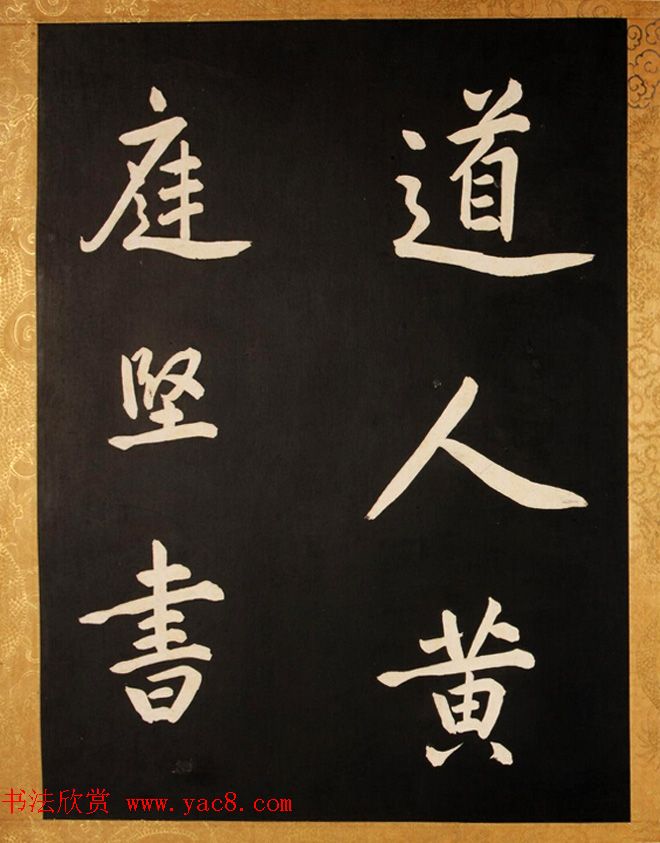 道人黄
庭坚書
书法欣赏 www.yac8.com